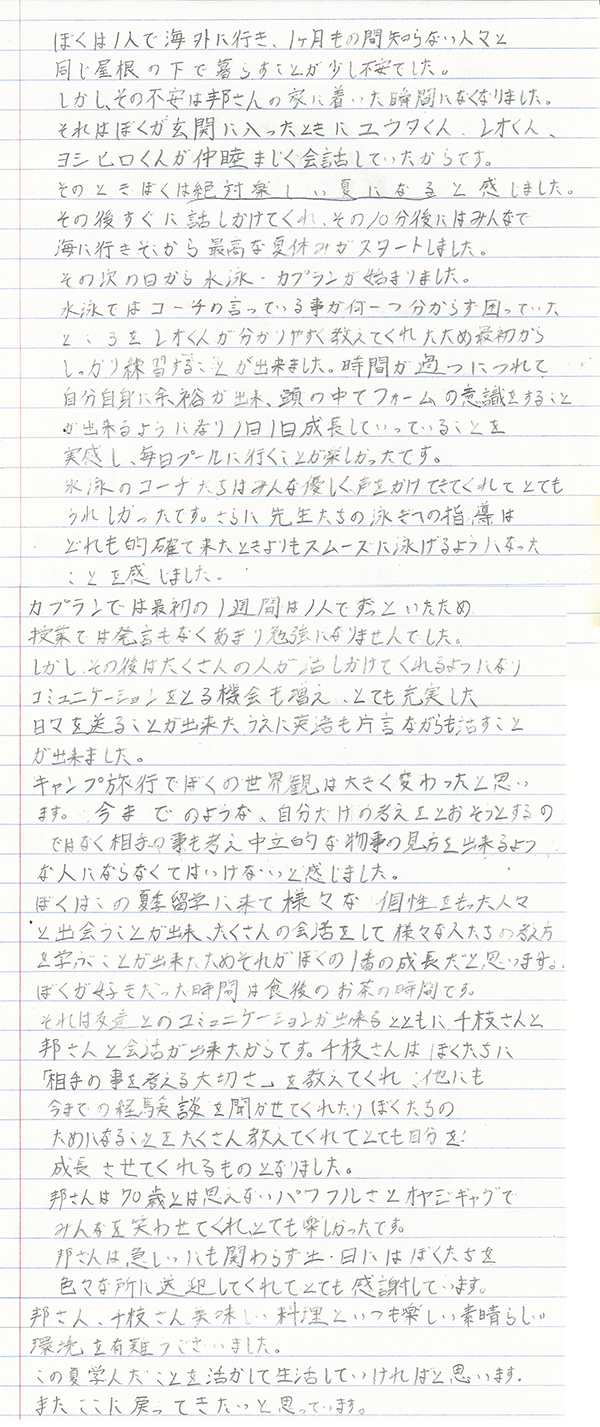 ぼくは1人で海外に行き、1ヶ月もの間知らない人々と
同じ屋根の下で暮らすことが少し不安でした。
しかし、その不安は邦さんの家に着いた瞬間になくなりました。
それはぼくが玄関に入ったときにユウタくん、レオくん、
ヨシヒロくんが仲睦まじく会話していたからです。
そのときぼくは絶対楽しい夏になると感じました。
その後すぐに話しかけてくれ、その10分後にはみんなで
海に行きそこから最高な夏休みがスタートしました。
その次の日から水泳・カプランが始まりました。
水泳ではコーチの言っている事が何一つ分からず困っていた
ところをレオくんが分かりやすく教えてくれたため最初から
しっかり練習することが出来ました。時間が過つにつれて
自分自身に余裕が出来、頭の中でフォームの意識をすること
が出来るようになり1日1日成長していっていることを
実感し、毎日プールに行くことが楽しかったです。
水泳のコーチたちはみんな優しく、声をかけてきてくれてとても
うれしかったです。さらに先生たちの泳ぎへの指導は
どれも的確で来たときよりもスムーズに泳げるようになった
ことを感じました。
カプランでは最初の1週間は1人でずっといたため
授業では発言もなくあまり勉強になりませんでした。
しかし、その後はたくさんの人が話しかけてくれるようになり
コミュニケーションをとる機会も増え、とても充実した
日々を送ることが出来た、うえに英語も片言ながらも話すこと
が出来ました。
キャンプ旅行でぼくの世界観は大きく変わったと思い
ます。今までのような、自分だけの考えをとおそうとするの
ではなく相手の事も考え中立的な物事の見方を出来るよう
な人にならなくてはいけないと感じました。
ぼくはこの夏季留学に来て様々な個性をもった人々
と出会うことが出来、たくさんの会話をして様々な人たちの考え方
を学ぶことが出来たためそれがぼくの1番の成長だと思います。
ぼくが好きだった時間は食後のお茶の時間です。
それは友達とのコミュニケーションが出来るとともに千枝さんと
邦さんと会話が出来たからです。千枝さんはぼくたちに
「相手の事を考える大切さ」を教えてくれ、他にも
今までの経験談を聞かせてくれたりぼくたちの
ためになることをたくさん教えてくれてとても自分を
成長させてくれるものとなりました。
邦さんは70歳とは思えないパワフルさとオヤジギャグで
みんなを笑わせてくれ、とても楽しかったです。
邦さんは急しいにも関わらず土・日にはぼくたちを
色々な所に送迎してくれてとても感謝しています。
邦さん、千枝さん美味しい料理といつも楽しい素晴らしい
環境を有難うございました。
この夏学んだことを活かして生活していければと思います。
またここに戻ってきたいと思っています。